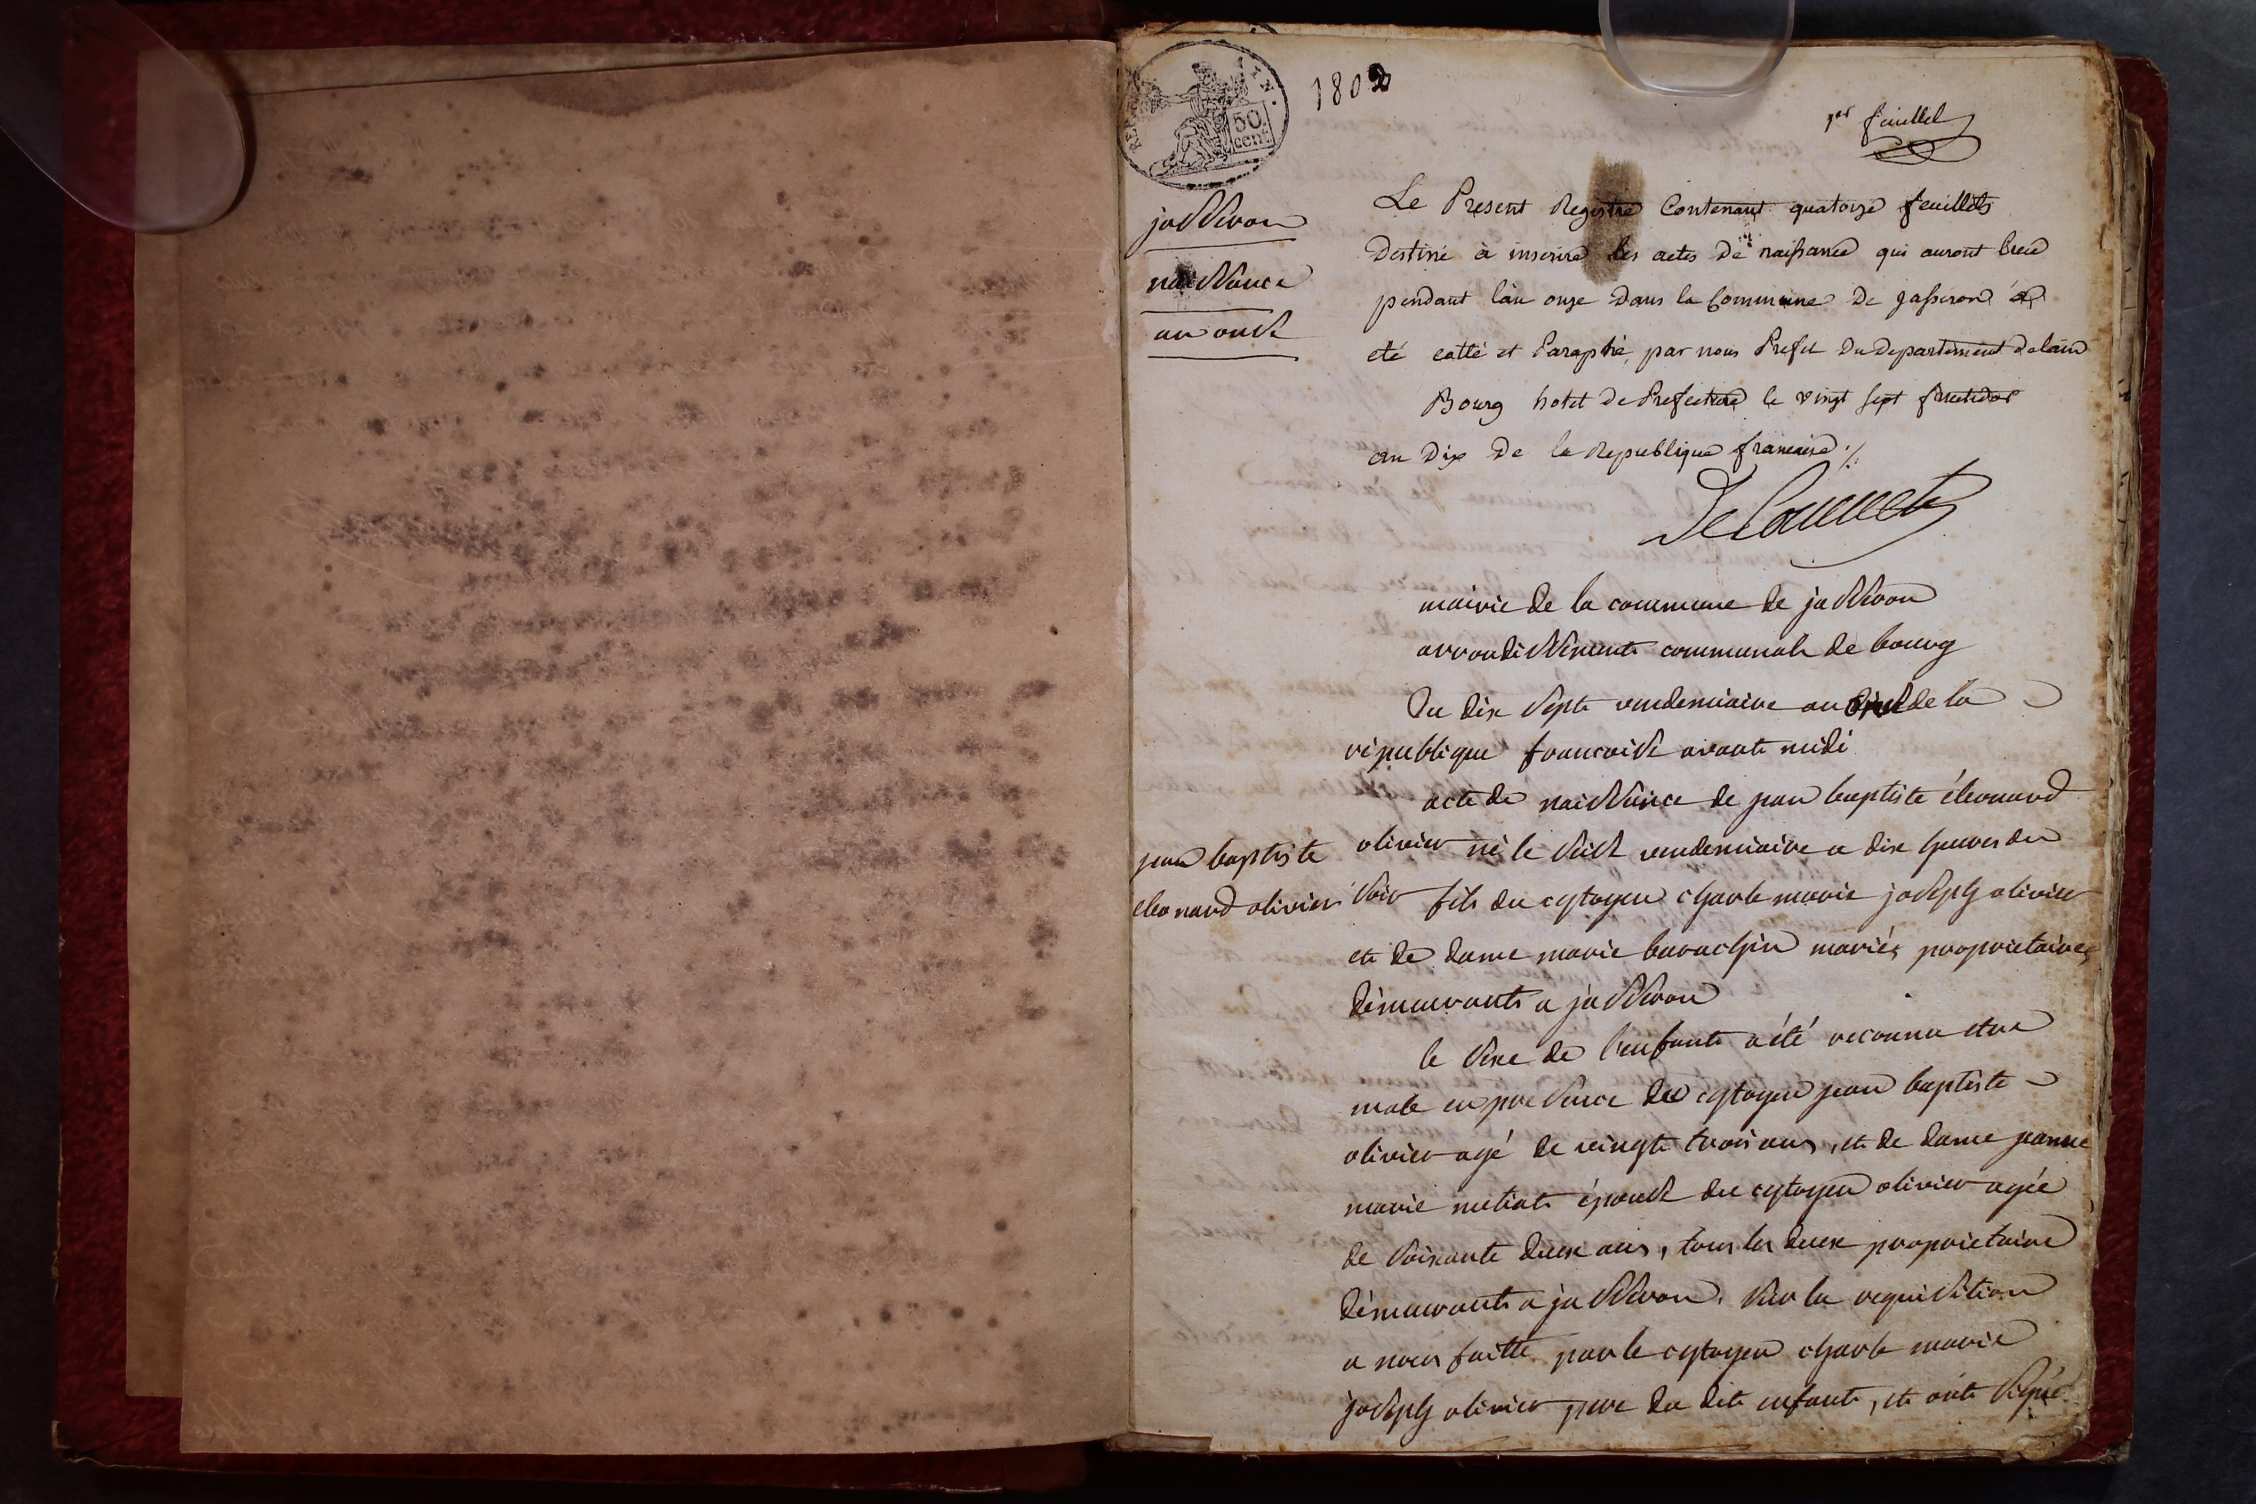 1802
1er feuillet
50 cent
jasseron
naissance
an onse
Le Present Registre Contenant quatorze feuillets
Destiné à inscrire les actes De naissance qui auront lieu
pendant l'an onze Dans la Commune De Jasseron a
eté cotté et Paraphé par nous Prefet Du Departement de lain
Bourg hotel De Prefecture le vingt sept fructidor
an Dix De la Republique francaise ./.
mairie de la commune de jasseron
arrondissement communale de bourg
Du dix septe vendemiaire an de la
republique francoise avante midi
acte de naissance de jean baptiste éléonard
olivier né le seise vendemiaire a dix heures du
soir fils du cytoyen charle marie joseph olivier
ete de dame marie barachin mariés proprietaires
démeurants a jasseron
jean baptiste
eleonard olivier
le sexe de l'enfante a été reconnu etre
male en presence du cytoyen jean baptiste
olivier agé de vingte trois ans, ete de dame jeanne
marie épouse du cytoyen olivier agée
de soixante deux ans, tous les deux proprietaire
démeurants a jasseron. sur la requisition
a nous faitte par le cytoyen charle marie
joseph olivier pere du dite enfante, ete onte signé